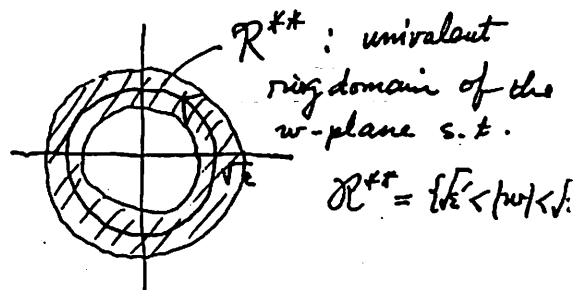 R** : univalent
ring domain of the
w-plane s.t.
√ε
R** = {√ε' < |w| < √